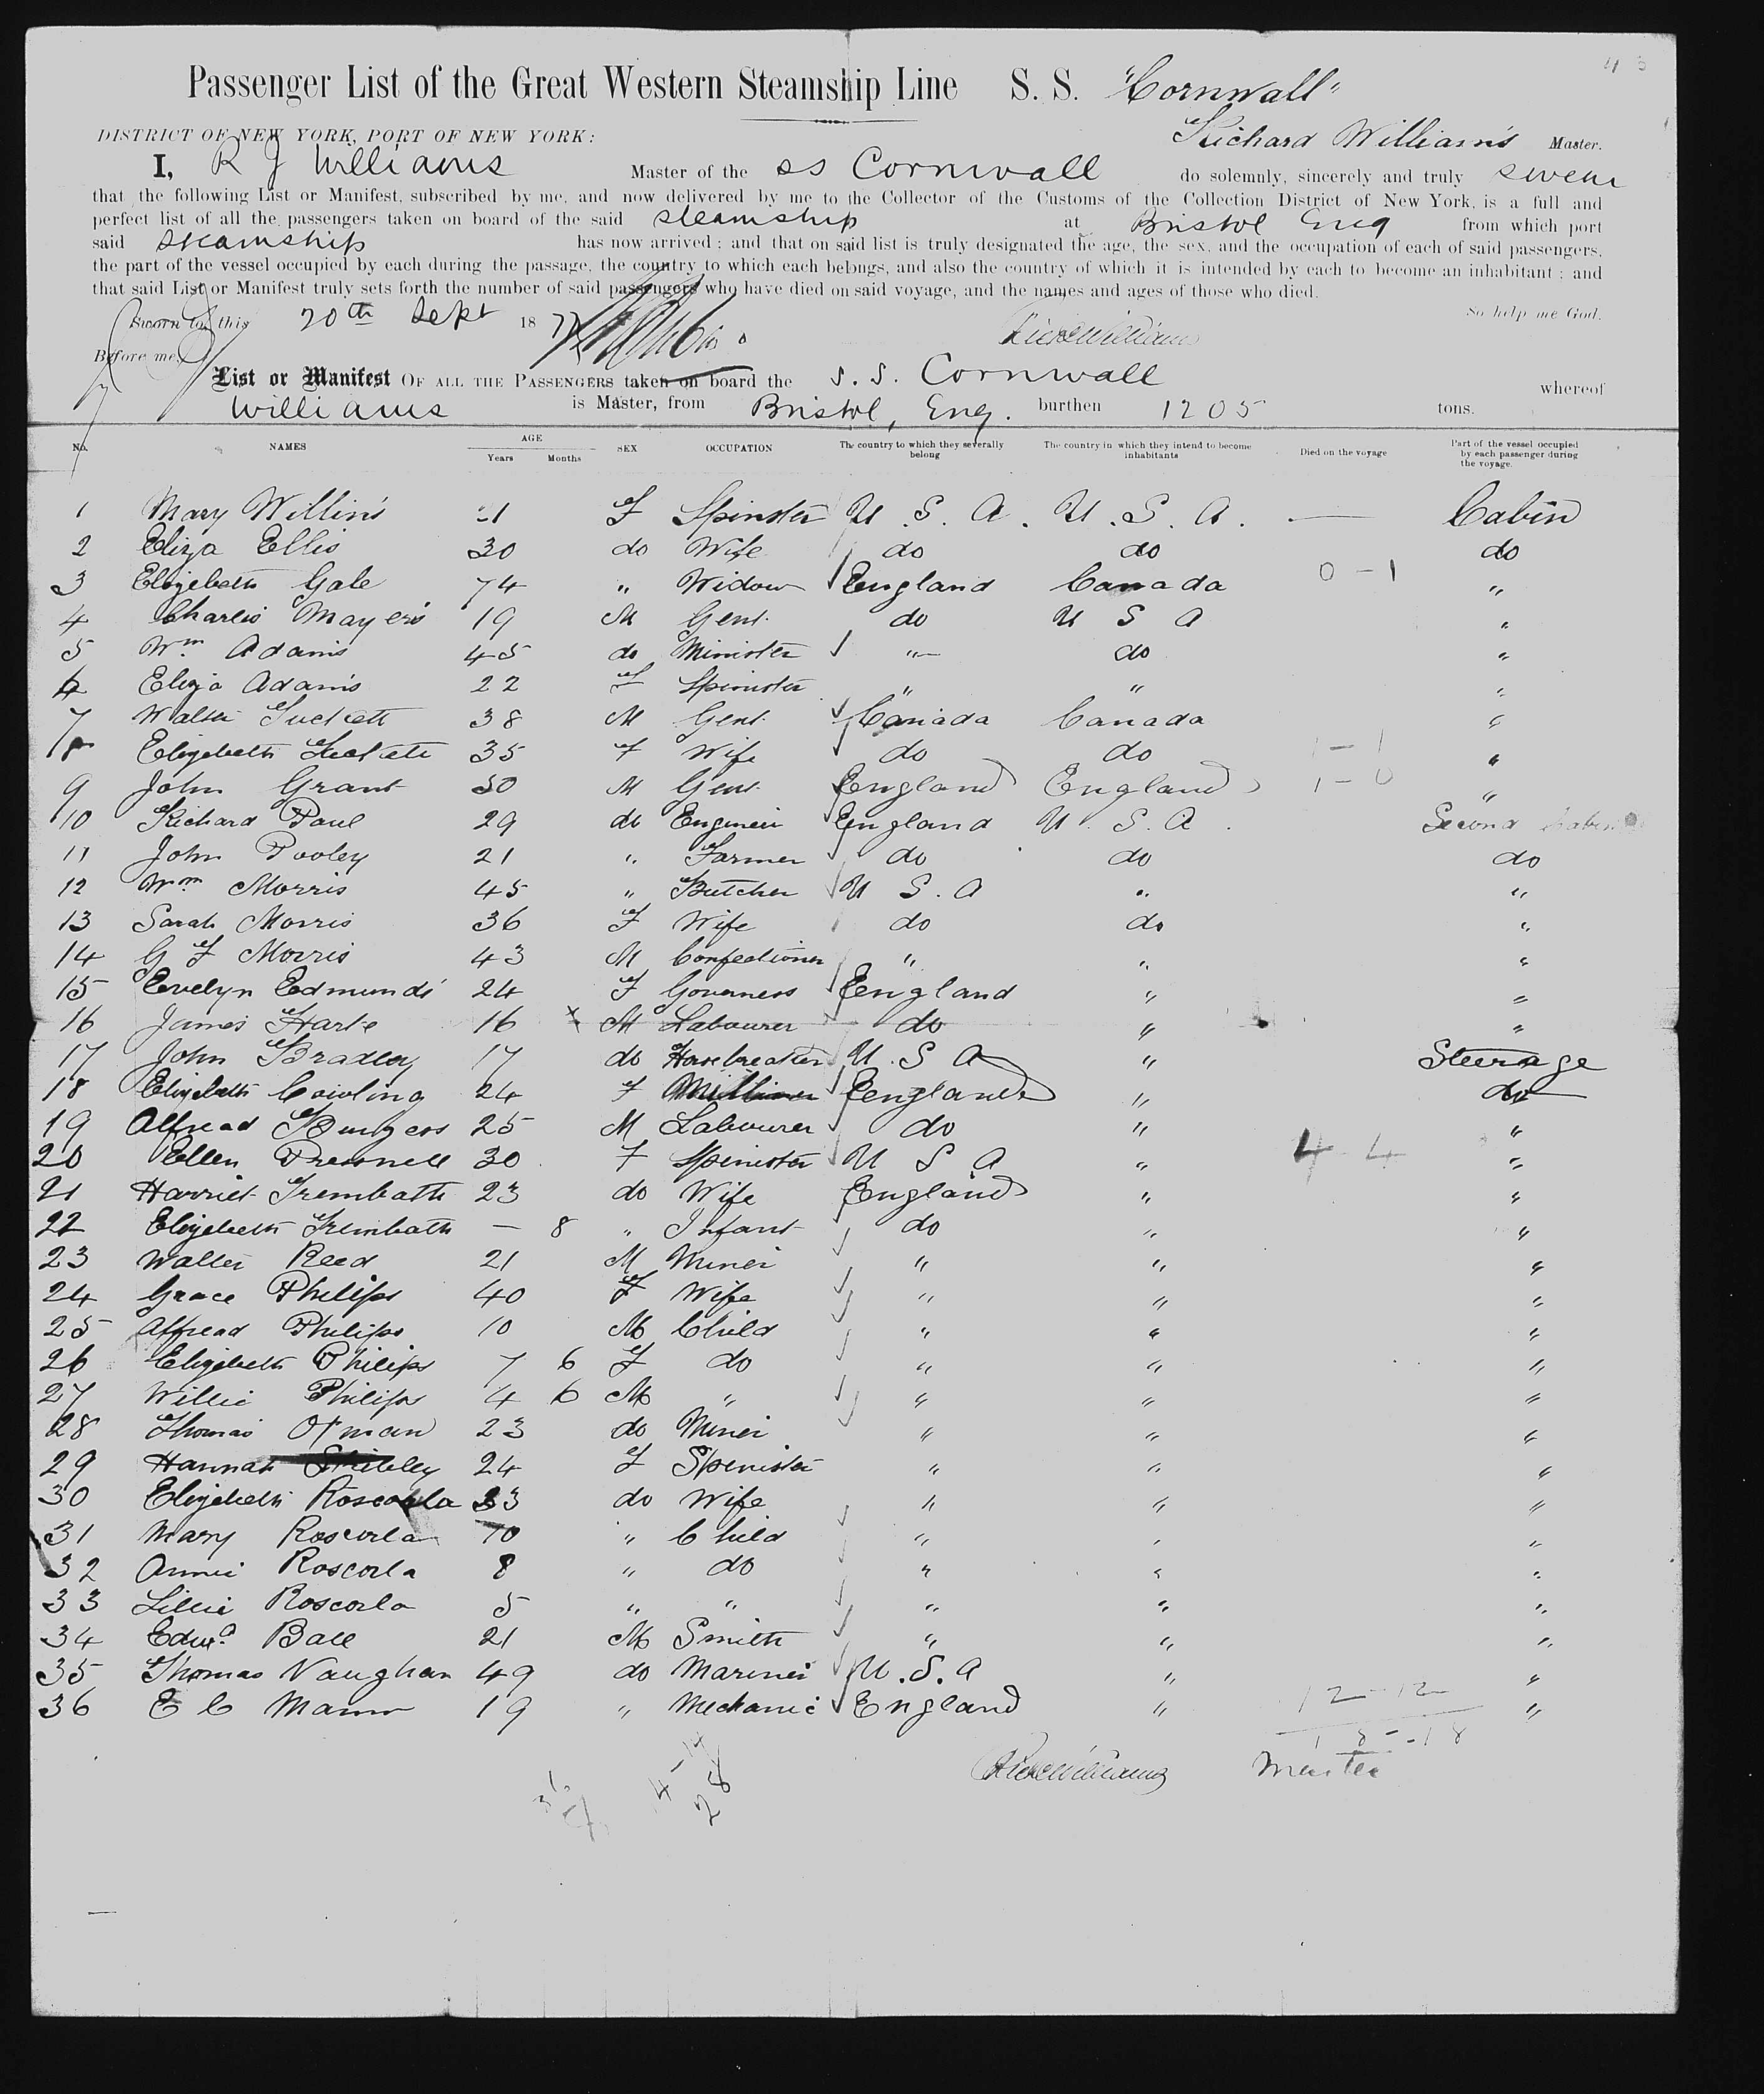 Passenger List of the Great Western Steamship Line S. S. "Cornwall"
DISTRICT OF NEW YORK, PORT OF NEW YORK: Richard Williams Master.
I, R J Williams Master of the ss Cornwall do solemnly, sincerely and truly swear
that the following List or Manifest, subscribed by me, and now delivered by me to the Collector of the Customs of the Collection District of New York, is a full and
perfect list of all the passengers taken on board of the said steamship at Bristol Eng from which port
said steamship has now arrived; and that on said list is truly designated the age, the sex, and the occupation of each of said passengers,
the part of the vessel occupied by each during the passage, the country to which each belongs, and also the country of which it is intended by each to become an inhabitant; and
that said List or Manifest truly sets forth the number of said passengers who have died on said voyage, and the names and ages of those who died.
So help me God.
Sworn to this 20th Sept 187
Before me,
List or Manifest OF ALL THE PASSENGERS taken on board the S. S. Cornwall whereof
Williams is Master, from Bristol, Eng. burthen 1205 tons.
No. NAMES AGE Years Months SEX OCCUPATION The country to which they severally belong The country in which they intend to become inhabitants Died on the voyage Part of the vessel occupied by each passenger during the voyage.
1 Mary Willins F Spinster U. S. A. U. S. A. — Cabin
2 Eliza Ellis 30 do Wife do do do
3 Elizabeth Gale 74 " Widow England Canada 0-1 "
4 Charles Mayers 19 M Gent. do U S A "
5 Wm Adams 45 do Minister " do "
6 Eliza Adams 22 F Spinster " " "
7 Walter 38 M Gent. Canada Canada "
8 Elizabeth 35 F Wife do do 1-1 "
9 John Grant 50 M Gent. England England 1-0 "
10 Richard Paul 29 do Engineer England U. S. A. Second Cabin
11 John Pooley 21 " Farmer do do do
12 Wm Morris 45 " Butcher U S. A " "
13 Sarah Morris 36 F Wife do do "
14 G F Morris 43 M Confectioner " " "
15 Evelyn Edmunds 24 F Governess England " "
16 James Harte 16 x M Labourer do " "
17 John Bradley 17 do Horsebreaker U. S A " Steerage
18 Elizabeth Cowling 24 F Milliner England " do
19 Alfread Burgess 25 M Labourer do " "
20 Ellen 30 F Spinister U S A " 4-4 "
21 Harriet Trembath 23 do Wife England " "
22 Elizabeth Trembath — 8 " Infant do " "
23 Walter Reed 21 M Miner " " "
24 Grace Philips 40 F Wife " " "
25 Alfread Philips 10 M Child " " "
26 Elizabeth Philips 7 6 F do " " "
27 Willie Philips 4 6 M " " " "
28 Thomas 23 do Miner " " "
29 Hannah 24 F Spenister " " "
30 Elizabeth Roscorla 33 do Wife " " "
31 Mary Roscorla 10 " Child " " "
32 Annie Roscorla 8 " do " " "
33 Lillie Roscorla 5 " " " " "
34 Edwd Ball 21 M Smith " " "
35 Thomas Vaughan 49 do Mariner U. S. A " "
36 E C Mann 19 " Mechanic England " 12-12 "
18-18
Richd Williams Master
4-14
28